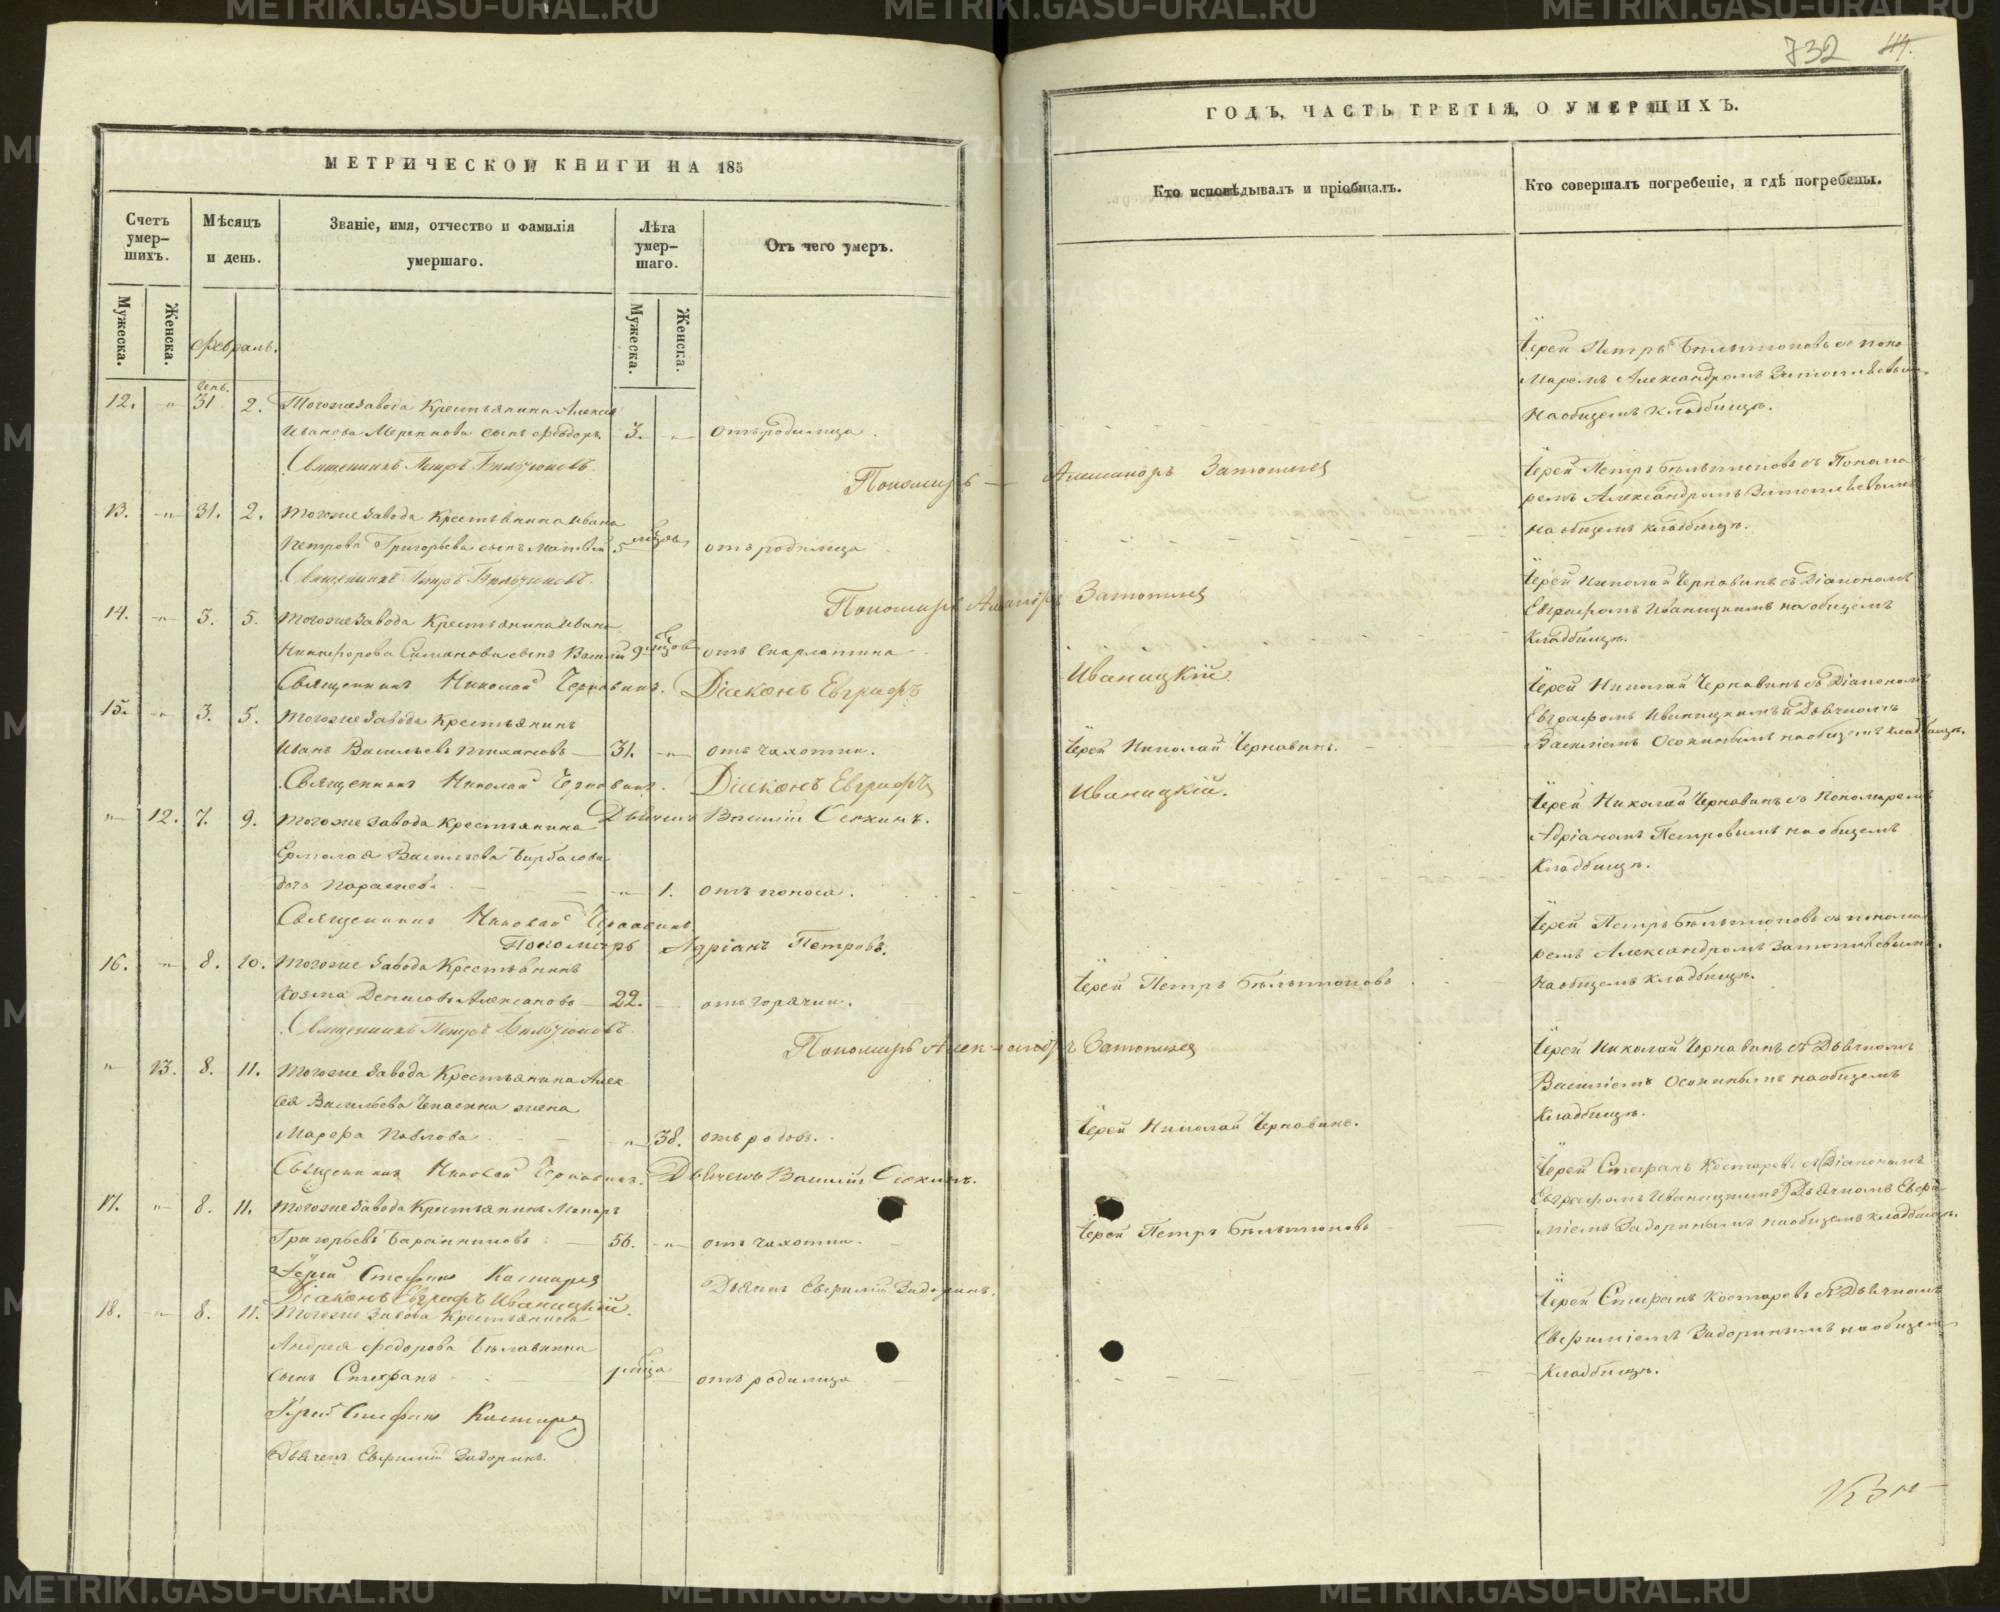 732 114.
МЕТРИЧЕСКОЙ КНИГИ НА 185
Счетъ умер-
шихъ.
Мѣсяцъ
и день.
Званіе, имя, отчество и фамилія
умершаго.
Лѣта
умер-
шаго.
Отъ чего умеръ.
Мужеска.
Женска.
Мужеска.
Женска.
Февраль.
Генв.
12. „ 31 2. Тогоже завода Крестьянина Алексѣя
Иванова сынъ Ѳеодоръ 3. „ отъ родимца.
Священникъ Петръ Бѣльтюковъ.
Пономарь
13. „ 31. 2. Тогоже завода Крестьянина Ивана
Петрова Григорьева сынъ Матвѣй 5 отъ родимца
Священникъ Петръ Бѣльтюковъ.
14. „ 3. 5. Тогоже завода Крестьянина Ивана
Никифорова сынъ 9 отъ скарлатина.
Священникъ Николай Чернавинъ. Діаконъ Евграфъ
15. „ 3. 5. Тогоже завода Крестьянинъ
Иванъ Васильевъ 31. „ отъ чахотки.
Священникъ Николай Чернавинъ. Діаконъ Евграфъ
„ 12. 7. 9. Тогоже завода Крестьянина
Дьячекъ Василій Осокинъ.
Ермолая Васильева
дочь Параскева „ 1. отъ поноса.
Священникъ Николай Чернавинъ
Пономарь Адріанъ Петровъ.
16. „ 8. 10. Тогоже завода Крестьянинъ
Козма Денисовъ 22. отъ горячки.
Священникъ Петръ Бѣльтюковъ.
„ 13. 8. 11. Тогоже завода Крестьянина Алек-
сѣя Васильева жена
Марфа Павлова „ 38. отъ родовъ.
Священникъ Николай Чернавинъ. Дьячекъ Василій Осокинъ.
17. „ 8. 11. Тогоже завода Крестьянинъ Макаръ
Григорьевъ Баранниковъ 56. „ отъ чахотки.
Іерей Стефанъ Костаревъ
Дьячекъ Евфимій Задоринъ.
Діаконъ Евграфъ Иваницкій.
18. „ 8. 11. Тогоже завода Крестьянина
Андрея Федорова
сынъ Стефанъ отъ родимца
Іерей Стефанъ Костаревъ
Дьячекъ Евфимій Задоринъ.
ГОДЪ, ЧАСТЬ ТРЕТІЯ, О УМЕРШИХЪ.
Кто исповѣдывалъ и пріобщалъ.
Кто совершалъ погребеніе, и гдѣ погребены.
Іерей Петръ Бѣльтюковъ съ поно-
маремъ Александромъ
на общемъ кладбищѣ.
Александръ
Іерей Петръ Бѣльтюковъ съ Понома-
ремъ Александромъ
на общемъ кладбищѣ.
Іерей Николай Чернавинъ съ Діакономъ
Евграфомъ Иваницкимъ на общемъ
кладбищѣ.
Иваницкій.
Іерей Николай Чернавинъ съ Діакономъ
Евграфомъ Иваницкимъ и Дьячкомъ
Василіемъ Осокинымъ на общемъ кладбищѣ.
Іерей Николай Чернавинъ.
Иваницкій.
Іерей Николай Чернавинъ съ Пономаремъ
Адріаномъ Петровымъ на общемъ
кладбищѣ.
Іерей Петръ Бѣльтюковъ съ понома-
ремъ Александромъ
на общемъ кладбищѣ.
Іерей Петръ Бѣльтюковъ
Іерей Николай Чернавинъ съ Дьячкомъ
Василіемъ Осокинымъ на общемъ
кладбищѣ.
Іерей Николай Чернавинъ.
Іерей Стефанъ Костаревъ съ Діакономъ
Евграфомъ Иваницкимъ Дьячкомъ Евфи-
міемъ Задоринымъ на общемъ кладбищѣ.
Іерей Петръ Бѣльтюковъ
Іерей Стефанъ Костаревъ съ Дьячкомъ
Евфиміемъ Задоринымъ на общемъ
кладбищѣ.
METRIKI.GASO-URAL.RU